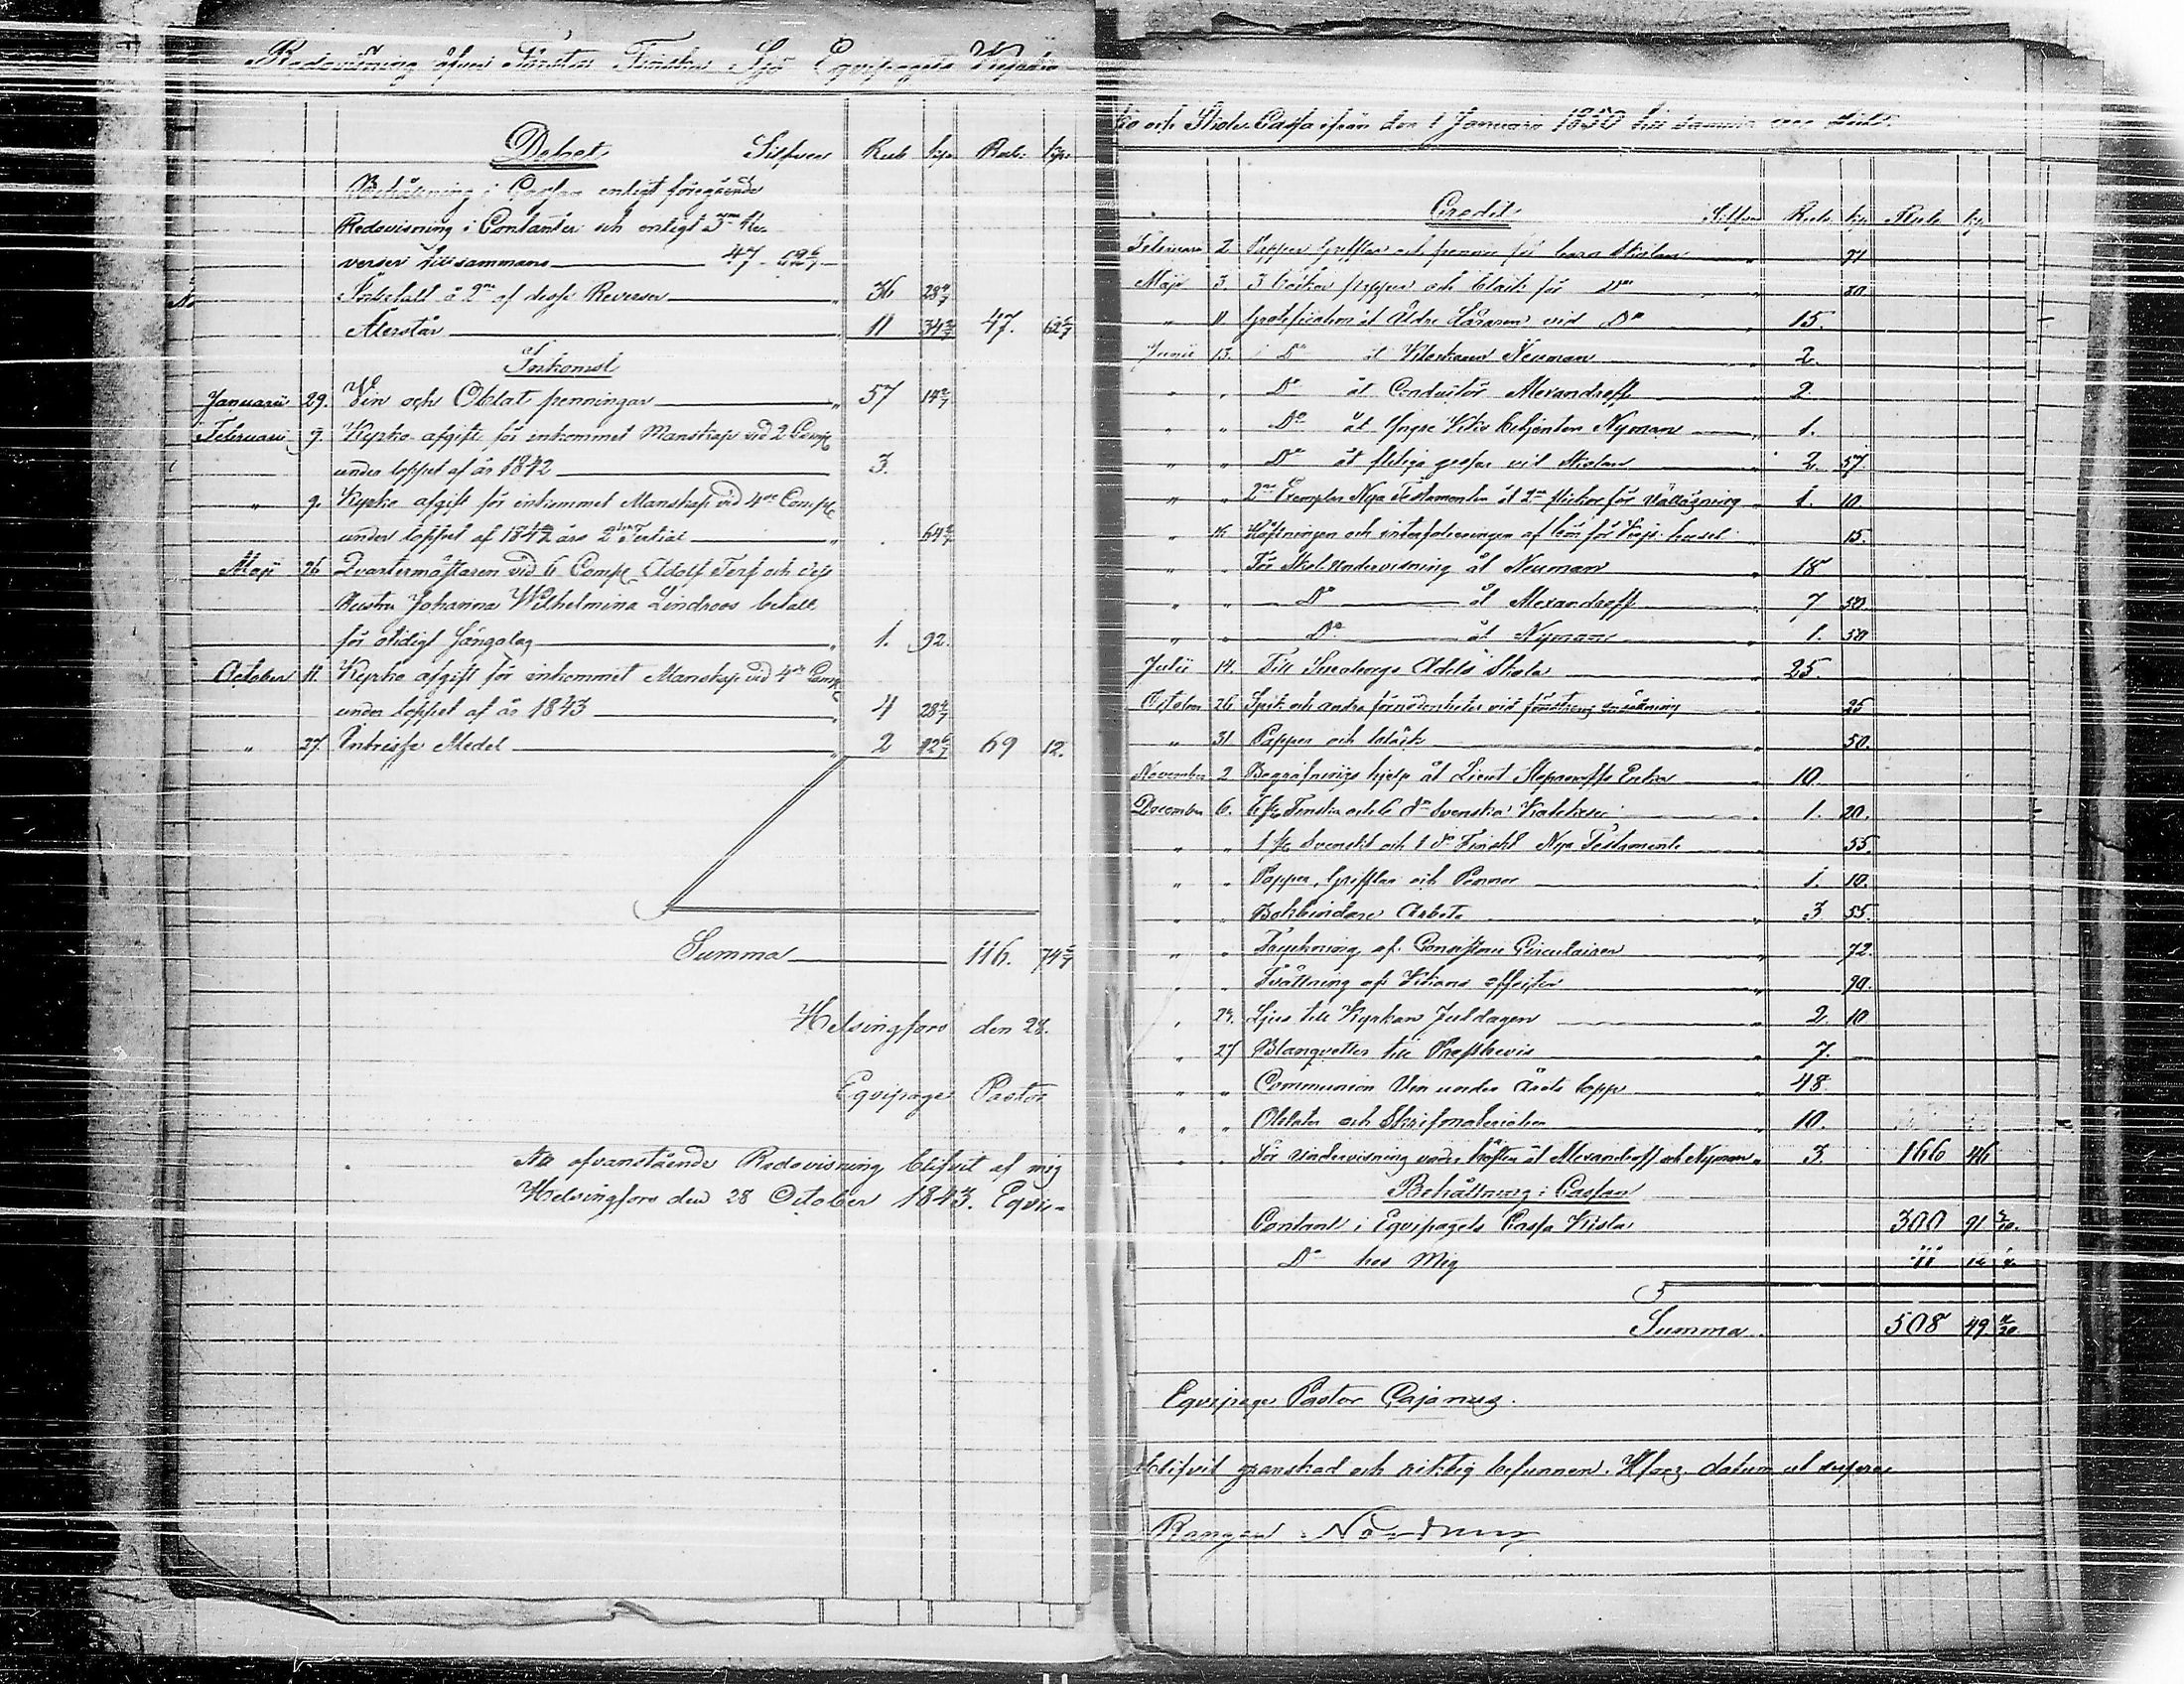 Redovisning öfver Första Finska Sjö Equipagets
Debet Silfver Rub kop. Rub: kop:
Behållning i Cassan enligt föregående
Redovisning i Contanter och enligt 3ne Re-
verser tillsammans 47 62 6/7
36 28 4/7
Återstår 11 34 2/7 47. 62 6/7
Inkomst
Januarii 29. Vin och Oblat penningar 57 14 2/7
Februari 9. Kyrko afgift för inkommet Manskap vid 2 Comp
under loppet af år 1842 3.
" 9. Kyrko afgift för inkommet Manskap vid 4de Comp
under loppet af 1842 års 2dra Tertial 64 2/7
Maji 26 Qvartermästaren vid 6 Comp Adolf och dess
Hustru Johanna Wilhelmina Lindroos betalt
för otidigt Sängelag 1. 92.
October 11. Kyrko afgift för inkommet Manskap vid 4de Comp
under loppet af år 1843 4 28 4/7
" 27. Intresse Medel 2 12 6/7 69 12.
Summa 116. 74 6/7
Helsingfors den 28.
Equipage Pastor
Att ofvanstående Redovisning blifvit af mig
Helsingfors den 28 October 1843. Equi-
ko och Skole Cassa ifrån den 1 Januari 1850 till samma
Credit Silfver Rub kop Rub kop
Februari 2. Papper Grifflar och pennor för barn Skolan 71
Maji 3. 3 böcker papper och bläck för Do 80
" 11. Gratification åt Äldre Läraren vid Do 15.
Junii 13. Do åt Neuman 2.
" " Do åt Conductör Alexandroff 2.
" " Do åt Yngre betjenten Nyman 1.
" " Do åt flitiga gossar vid Skolan 2. 57.
" " 2ne Exemplar Nya Testamenten åt 2ne flickor för 1. 10
15.
" " För Skol Undervisning åt Neuman 18
" " Do åt Alexandroff 7 50
" " Do åt Nyman 1. 50
Julii 14. Till Sveaborgs Skola 25.
October 26 Spik och andra förnödenheter vid 25
" 31 Papper och bläck 50.
November 2 Begrafnings hjelp åt Lieut Enka 10.
December 6. 6 st Finska och 6 do Svenska Katekeser 1. 20.
" " 1 st Svenskt och 1 do Finskt Nya Testamente 55.
" " Papper, Grifflar och Pennor 1. 10.
" " Bokbindare Arbete 3 55.
" " Tryckning af Circulairer 72.
" " Tvättning af Kyrkans effecter 90.
" 24. Ljus till Kyrkan Juldagen 2. 10
" 27 Blanquetter till Prestbevis 7. —
" " Communion Vin under Årets lopp 48
" " Oblater och Skrifmaterialier 10.
" " För Undervisning under hösten åt Alexandroff och Nyman 3. 166 46
Behållning i Cassan
Contant i Equipagets Cassa Kista 300 91
Do hos Mig
Summa 508 49
Equipage Pastor Cajanus.
blifvit granskad och riktig befunnen. Hfors. datum ut supra